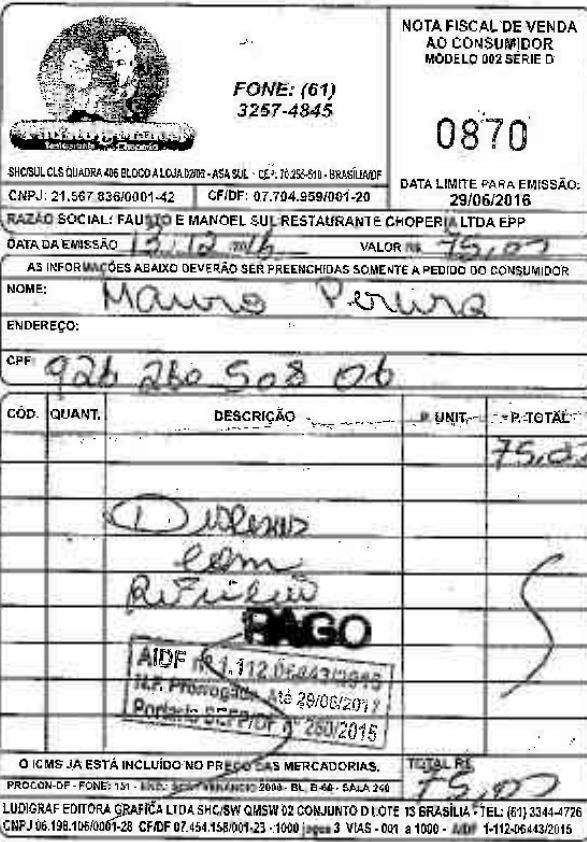 NOTA FISCAL DE VENDA
AO CONSUMIDOR
MODELO 002 SÉRIE D
FONE: (61)
3257-4845
0870
Restaurante e Choperia
SHC/SUL CLS QUADRA 406 BLOCO A LOJA 02/03 - ASA SUL - CEP: 70.255-510 - BRASÍLIA/DF
DATA LIMITE PARA EMISSÃO:
29/06/2016
CNPJ: 21.567.836/0001-42 CF/DF: 07.704.959/001-20
RAZÃO SOCIAL: FAUSTO E MANOEL SUL RESTAURANTE CHOPERIA LTDA EPP
DATA DA EMISSÃO 12/12 VALOR R$ 75,00
AS INFORMAÇÕES ABAIXO DEVERÃO SER PREENCHIDAS SOMENTE A PEDIDO DO CONSUMIDOR
NOME: Mauro
ENDEREÇO:
CPF: 926 280 508 06
CÓD. QUANT. DESCRIÇÃO P. UNIT. P. TOTAL
75,00
com
PAGO
AIDF nº 1.112.06443/2015
N.F. Prorrogada Até 29/06/2017
Portaria SEFP/DF nº 250/2015
O ICMS JA ESTÁ INCLUÍDO NO PREÇO DAS MERCADORIAS.
TOTAL R$
75,00
PROCON-DF - FONE: 151 - 2000 - BL. B-60 - SALA 240
LUDIGRAF EDITORA GRAFÍCA LTDA SHC/SW QMSW 02 CONJUNTO D LOTE 13 BRASÍLIA - TEL: (61) 3344-4726
CNPJ 06.198.106/0001-28 CF/DF 07.454.158/001-23 - 1000 jogos 3 VIAS - 001 a 1000 - AIDF 1-112-06443/2015